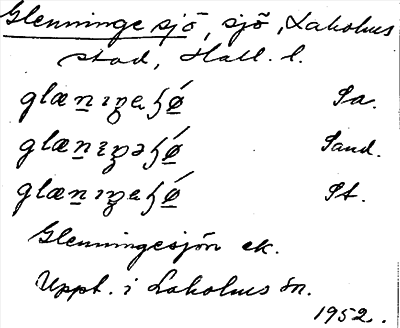 Glenninge sjö, sjö, Laholms
stad, Hall. l.
glænıŋaʃǿ Sa.
glænıŋəʃǿ Sand.
glænıŋaʃǿ St.
Glenningesjön ek.
Uppt. i Laholms sn.
1952.